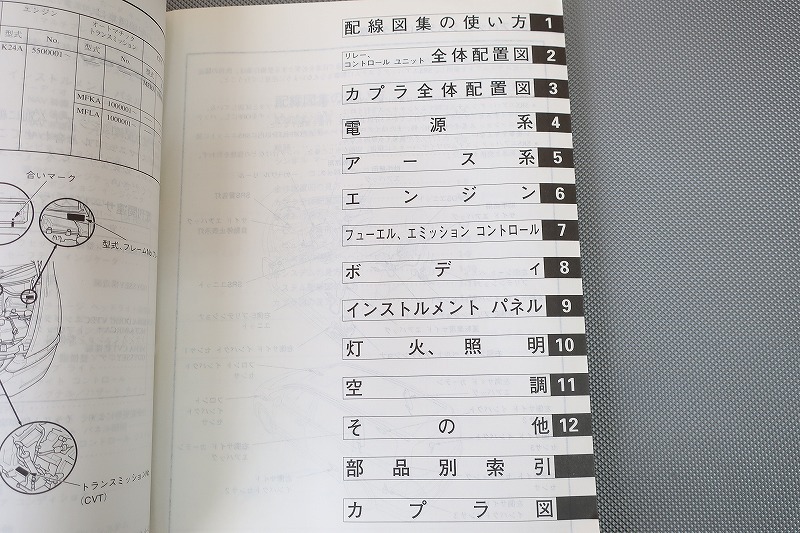 エンジン
オートマチック
トランスミッション
型式
No.
型式
No.
K24A
5500001～
MFKA
1000001～
MFLA
1000001～
合いマーク
トランスミッション
(CVT)
配線図集の使い方 1
リレー、
コントロール ユニット 全体配置図 2
カプラ全体配置図 3
電源系 4
アース系 5
エンジン 6
フューエル、エミッション コントロール 7
ボディ 8
インストルメント パネル 9
灯火、照明 10
空調 11
その他 12
部品別索引
カプラ図